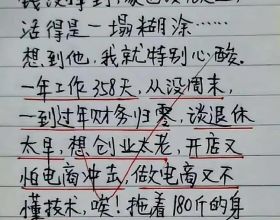 活得是一塌糊涂……
想到他，我就特别心酸。
一年工作358天，从没周末，
一到过年财务归零，谈退休
太早，想创业太老，开店又
怕电商冲击，做电商又不
懂技术，唉！拖着180斤的身